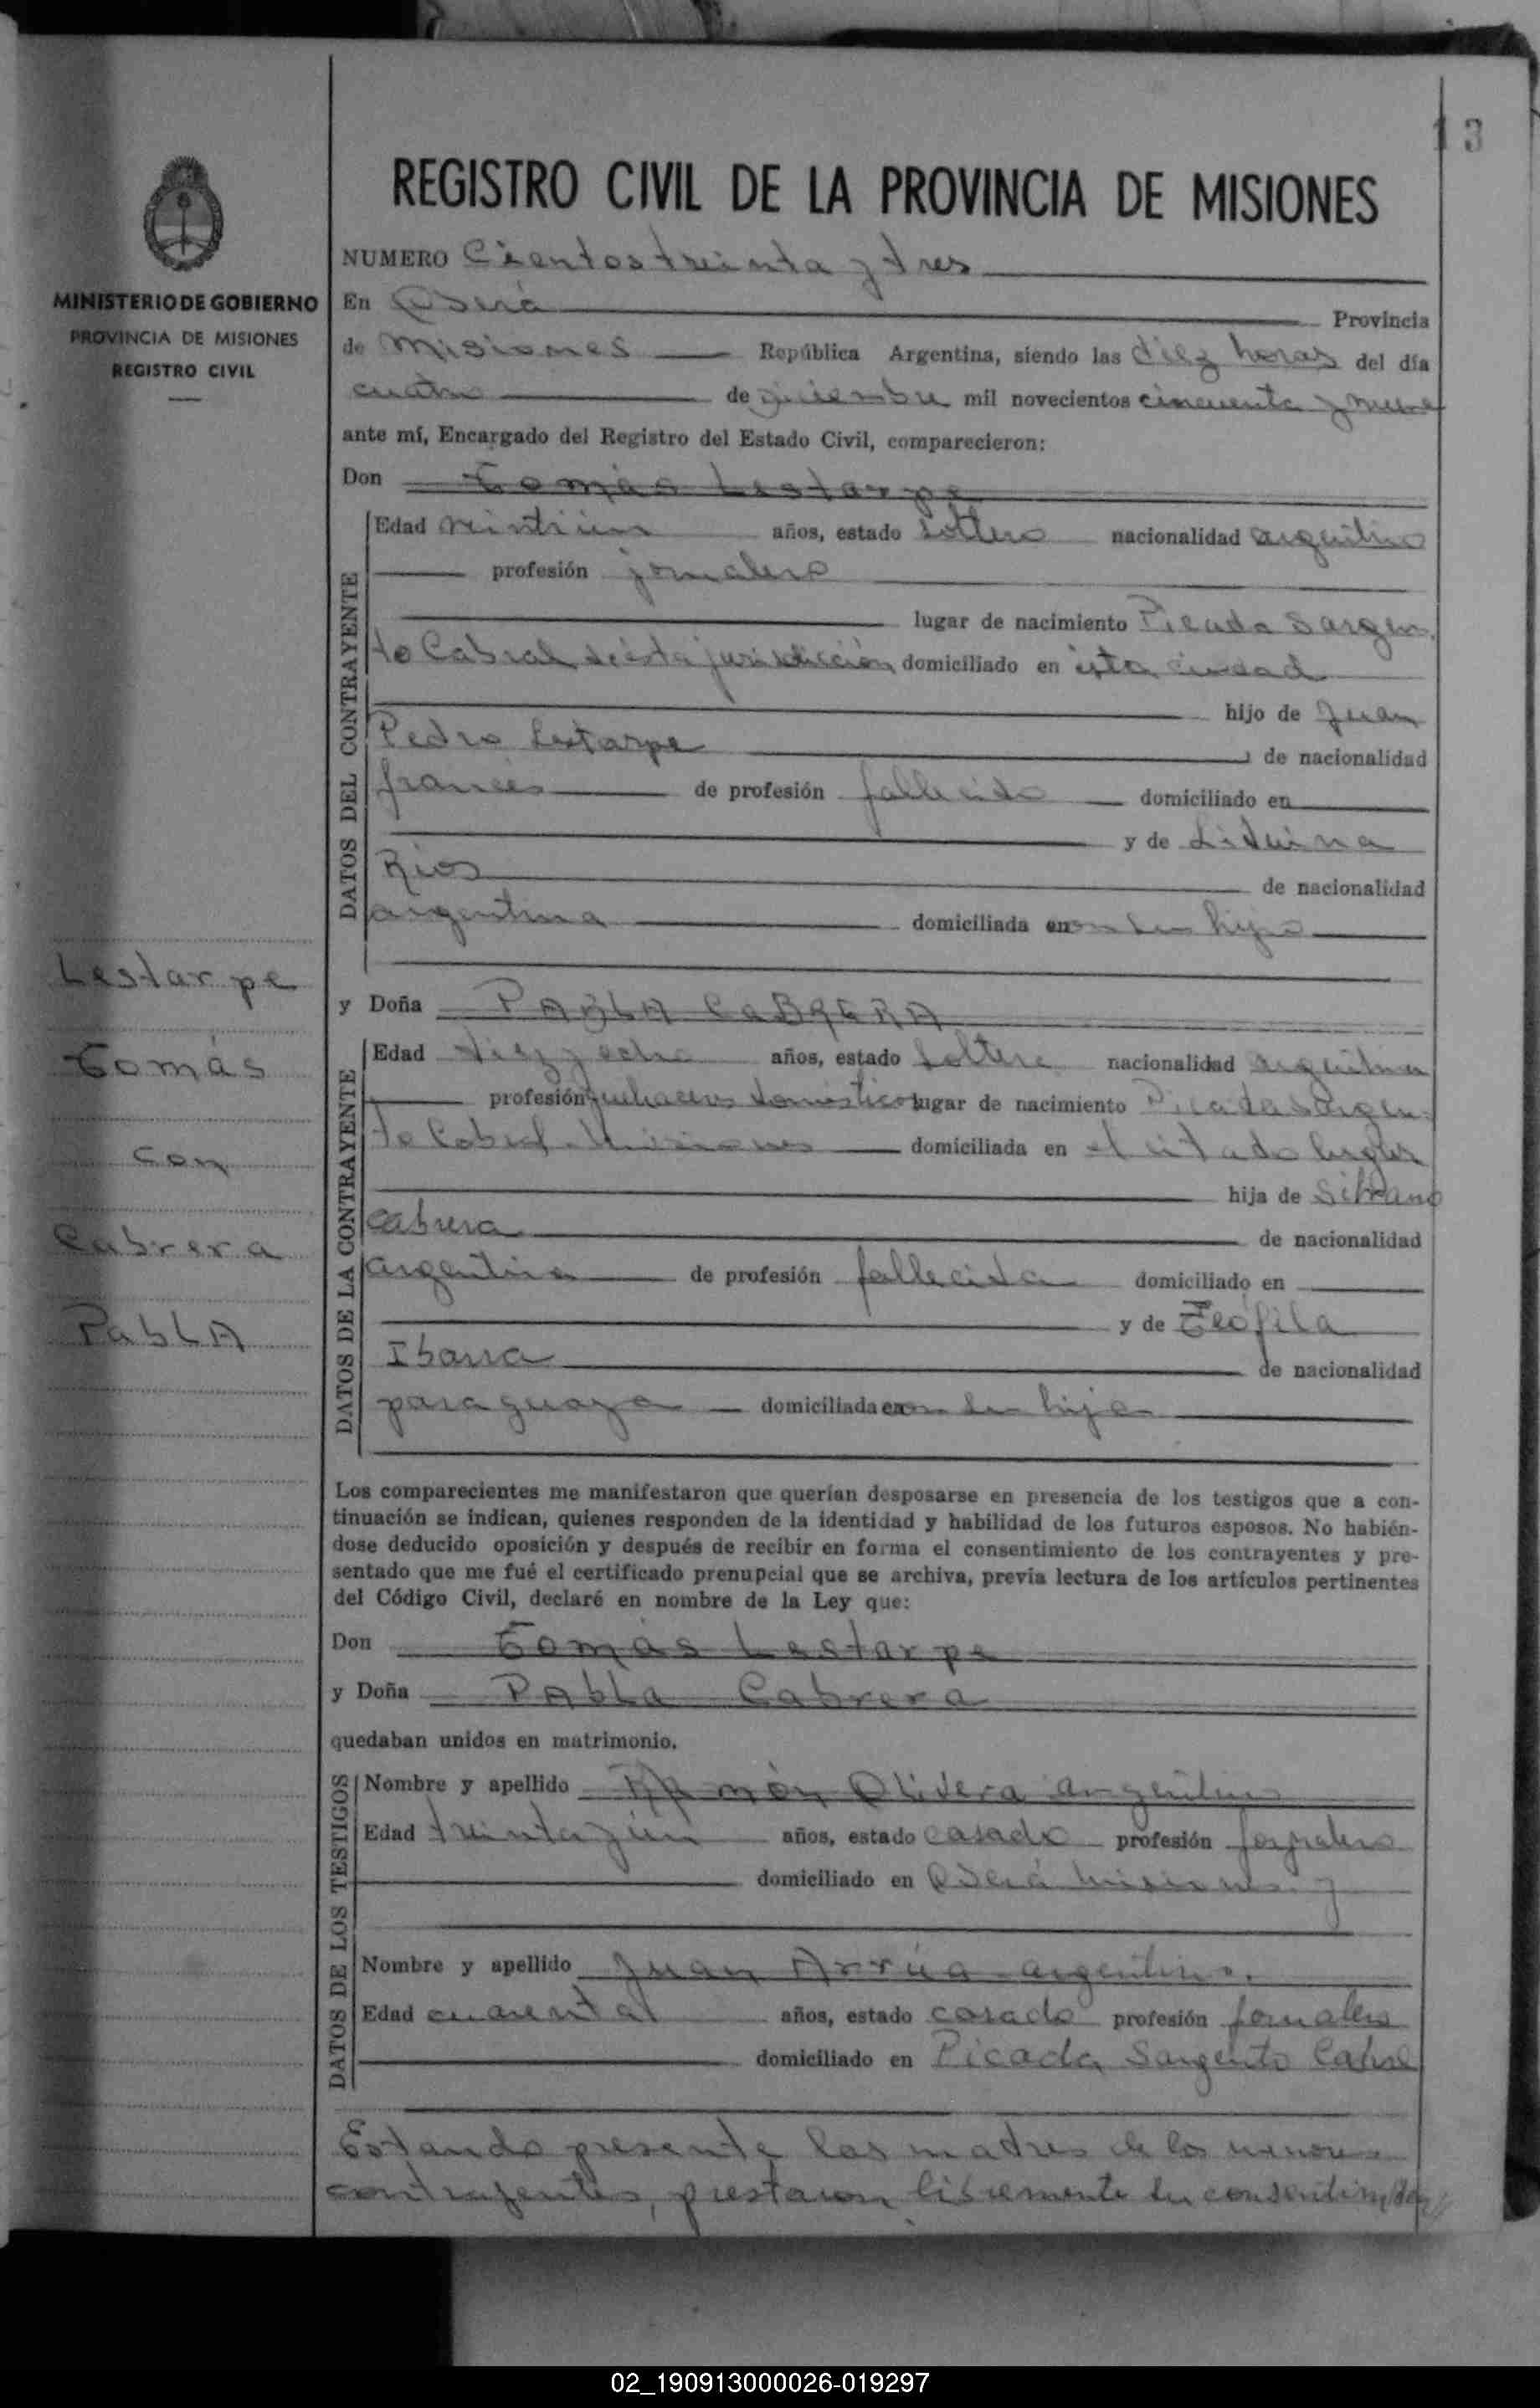 13
REGISTRO CIVIL DE LA PROVINCIA DE MISIONES
MINISTERIO DE GOBIERNO
PROVINCIA DE MISIONES
REGISTRO CIVIL
NUMERO Cientos treinta y tres
En Oberá Provincia
de Misiones República Argentina, siendo las diez horas del día
cuatro de diciembre mil novecientos cincuenta y nueve
ante mí, Encargado del Registro del Estado Civil, comparecieron:
Don Tomás Lestarpe
DATOS DEL CONTRAYENTE
Edad veintiún años, estado soltero nacionalidad argentino
profesión jornalero
lugar de nacimiento Picada Sargen
to Cabral de ésta jurisdicción domiciliado en ésta ciudad
hijo de Juan
Pedro Lestarpe de nacionalidad
francés de profesión fallecido domiciliado en
y de Liduina
Rios de nacionalidad
argentina domiciliada en con su hijo
y Doña PABLA CABRERA
DATOS DE LA CONTRAYENTE
Edad diez y ocho años, estado soltera nacionalidad argentina
profesión quehaceres domésticos lugar de nacimiento Picada Sargen
to Cabral Misiones domiciliada en el citado lugar
hija de Silvano
Cabrera de nacionalidad
argentina de profesión fallecida domiciliado en
y de Teófila
Ibarra de nacionalidad
paraguaya domiciliada en con su hija
Los comparecientes me manifestaron que querían desposarse en presencia de los testigos que a con-
tinuación se indican, quienes responden de la identidad y habilidad de los futuros esposos. No habién-
dose deducido oposición y después de recibir en forma el consentimiento de los contrayentes y pre-
sentado que me fué el certificado prenupcial que se archiva, previa lectura de los artículos pertinentes
del Código Civil, declaré en nombre de la Ley que:
Don Tomás Lestarpe
y Doña PAbLa Cabrera
quedaban unidos en matrimonio.
DATOS DE LOS TESTIGOS
Nombre y apellido RAmón Olivera argentino
Edad treinta y ún años, estado casado profesión jornalero
domiciliado en Oberá Misiones. y
Nombre y apellido Juan Arrúa argentino.
Edad cuarenta años, estado casado profesión jornalero
domiciliado en Picada Sargento Cabral
Estando presente las madres de los menores
contrayentes, prestaron libremente su consentimiento
Lestarpe
Tomás
con
Cabrera
PabLA
02_190913000026-019297